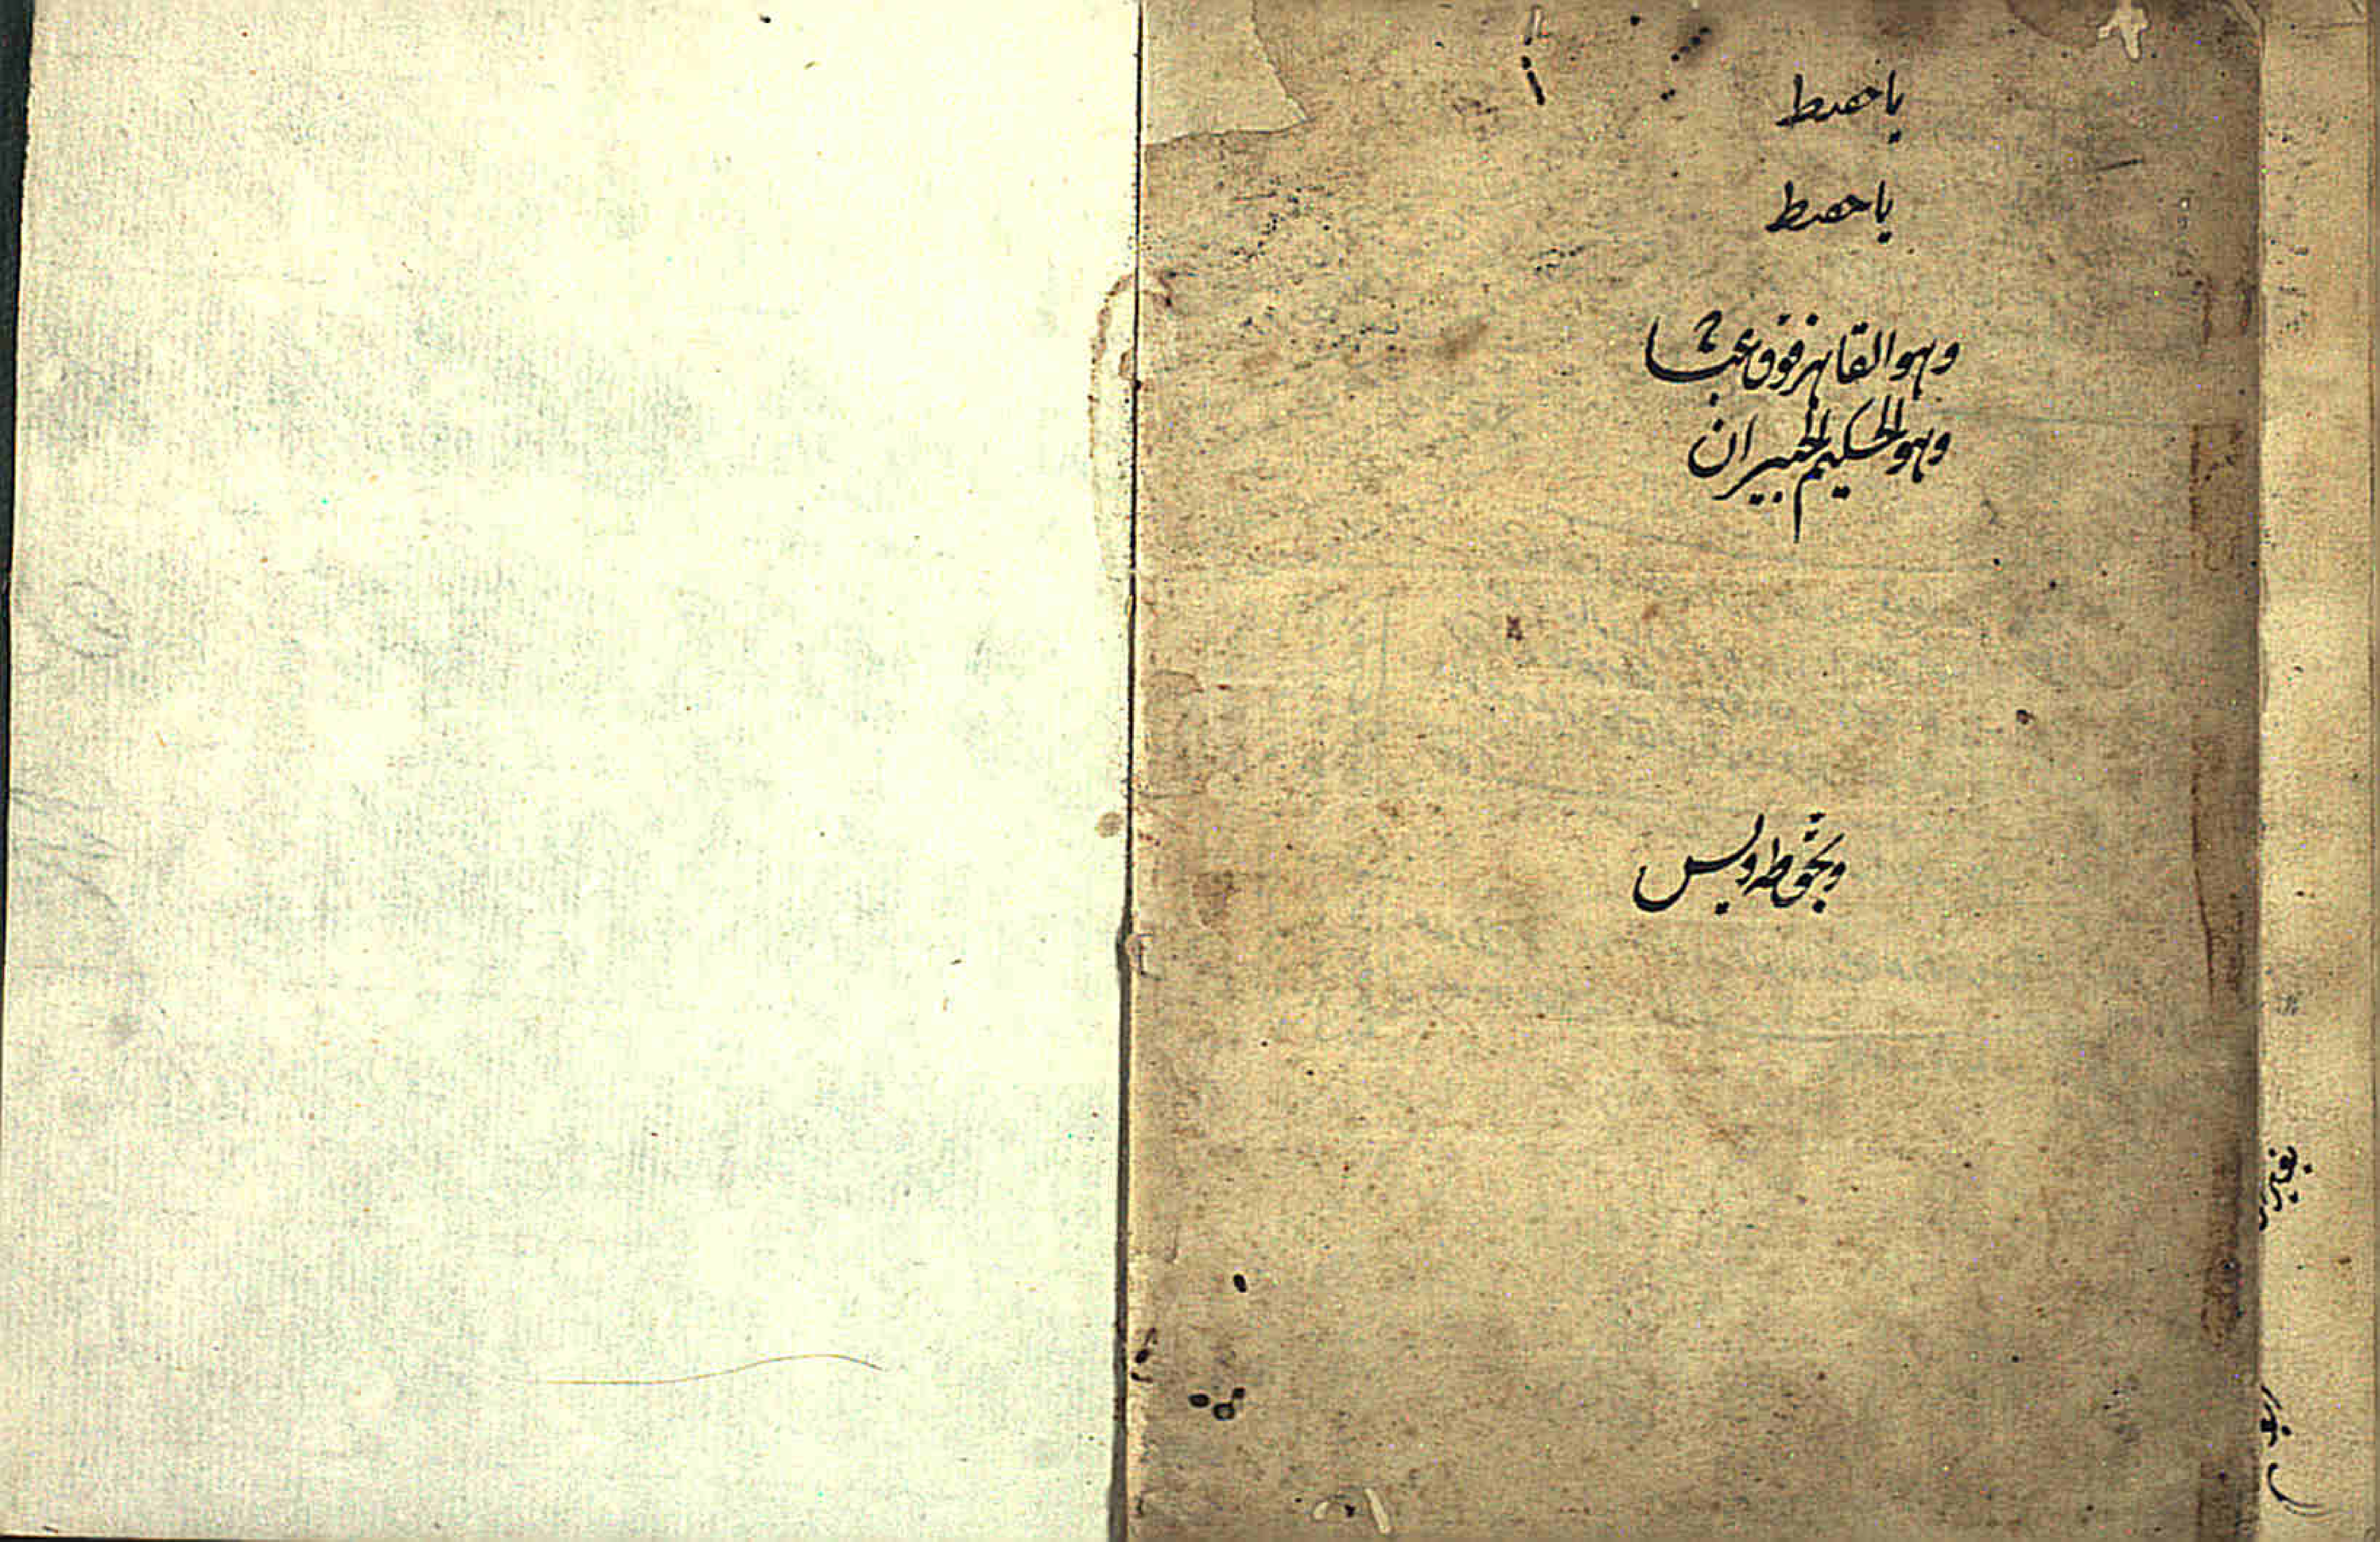 يا حفيظ
يا حفيظ
وهو القاهر فوق عباده
وهو الحكيم الخبير ان
وبحق طه ويس